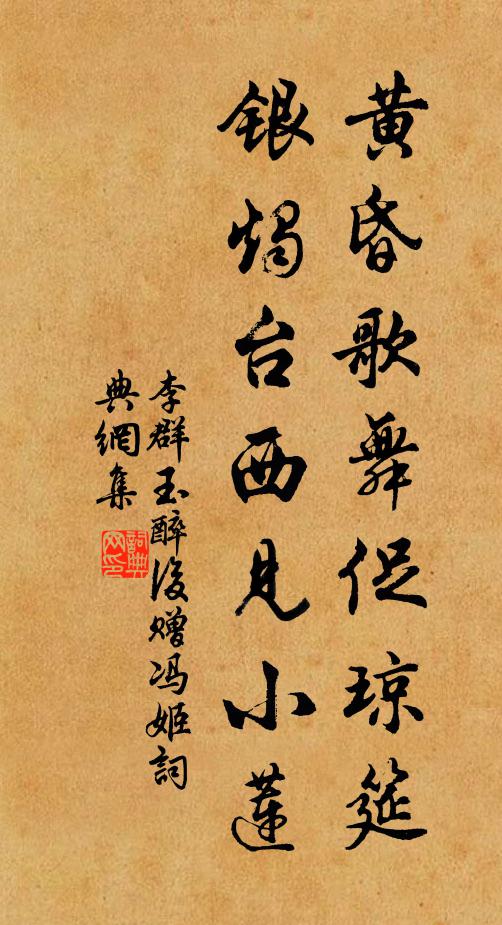 黄昏歌舞促琼筵
银烛台西见小莲
李群玉醉後赠冯姬詞
典網集
詞典网印